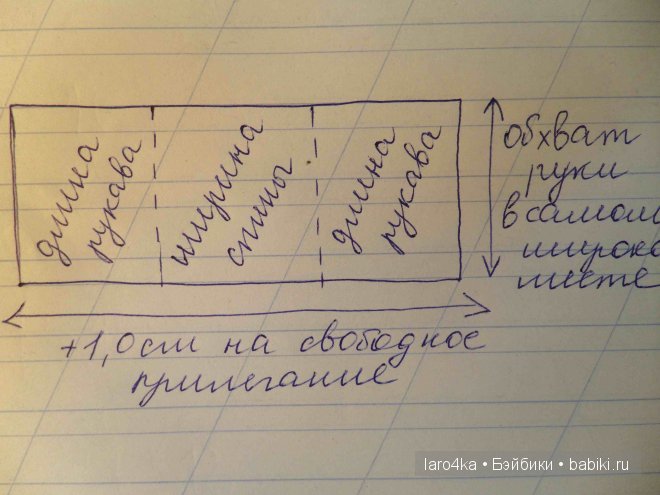 длина
рукава
ширина
спины
длина
рукава
обхват
руки
в самом
широко
месте
+1,0 см на свободное
прилегание
laro4ka • Бэйбики • babiki.ru